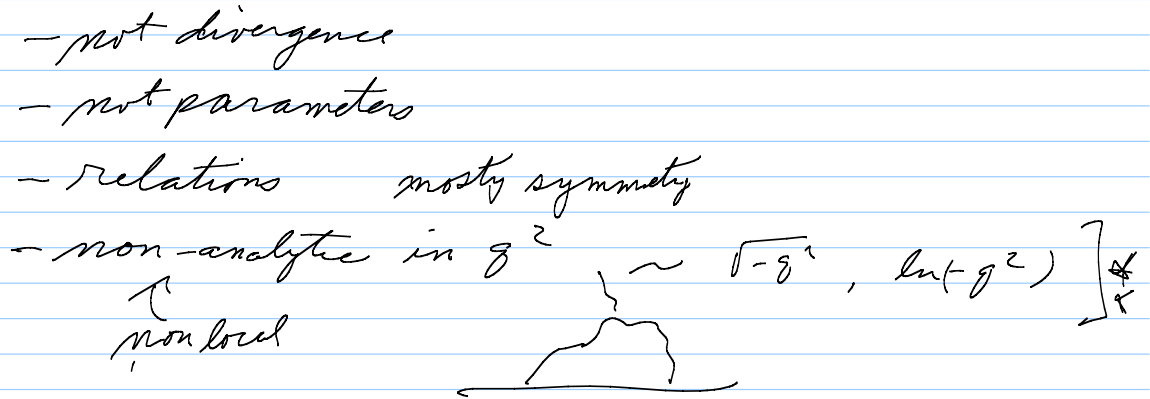 - not divergence
- not parameters
- relations mosty symmety
- non-analytic in q² ~ √-q² , ln(-q²) ]
non local